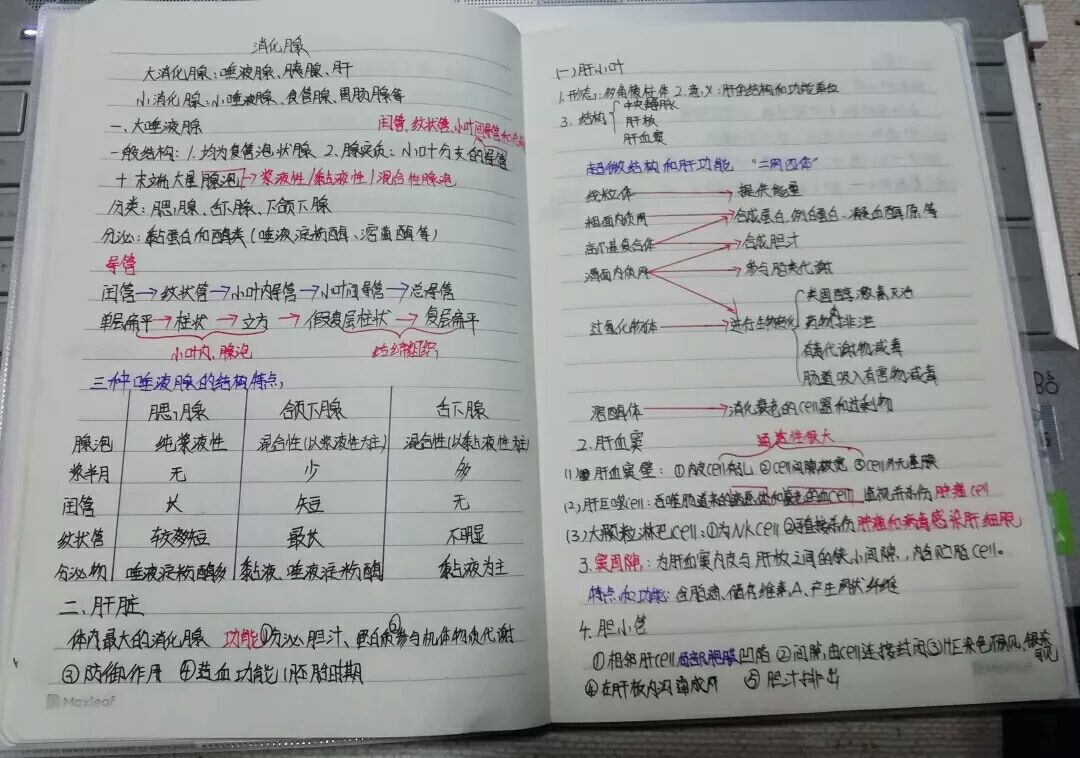 消化腺
大消化腺:唾液腺、胰腺、肝
小消化腺:小唾液腺、食管腺、胃肠腺等
一、大唾液腺
闰管、纹状管、小叶间导管和总
一般结构:1.均为复管泡状腺 2.腺实质:小叶分支的导管
+ 末端大量腺泡→浆液性/黏液性/混合性腺泡
分类:腮腺、舌下腺、下颌下腺
分泌:黏蛋白和酶类(唾液淀粉酶、溶菌酶等)
导管
闰管→纹状管→小叶内导管→小叶间导管→总导管
单层扁平→柱状→立方→假复层柱状→复层扁平
小叶内、腺泡 结缔组织
三种唾液腺的结构特点:
腮腺 颌下腺 舌下腺
腺泡 纯浆液性 混合性(以浆液性为主) 混合性(以黏液性为主)
浆半月 无 少 多
闰管 长 短 无
纹状管 较短 最长 不明显
分泌物 唾液淀粉酶多 黏液、唾液淀粉酶 黏液为主
二、肝脏
体内最大的消化腺 功能①分泌胆汁、蛋白质②参与机体物质代谢
③防御作用 ④造血功能(胚胎时期
Maxleaf
(一)肝小叶
1.形态:多角棱柱体 2.意义:肝的结构和功能单位
3.结构 中央静脉
肝板
肝血窦
超微结构和肝功能 “二网四体”
线粒体→提供能量
粗面内质网
合成蛋白,例白蛋白、凝血酶原等
高尔基复合体
合成胆汁
滑面内质网
参与脂类代谢
类固醇激素灭活
过氧化物体→进行生物转化 药物排泄
有毒代谢物减毒
肠道吸入有害物减毒
溶酶体→消化衰老的cell器和过剩物
2.肝血窦 通透性很大
(1)肝血窦壁:①内皮cell有孔 ②cell间隙较宽 ③cell外无基膜
(2)肝巨噬cell:吞噬肠道来的病原体和衰老的血cell、监视杀伤肿瘤cell
(3)大颗粒淋巴cell:①为NKcell ②直接杀伤肿瘤和病毒感染肝细胞
3.窦周隙:为肝血窦内皮与肝板之间的狭小间隙,内含贮脂cell。
特点和功能:含脂滴、储存维素A、产生网状纤维
4.胆小管
①相邻肝cell局部胞膜凹陷 ②间隙由cell连接封闭③HE染色不易见,银染可见
④在肝板内沟通成网 ⑤胆汁排出
Maxleaf